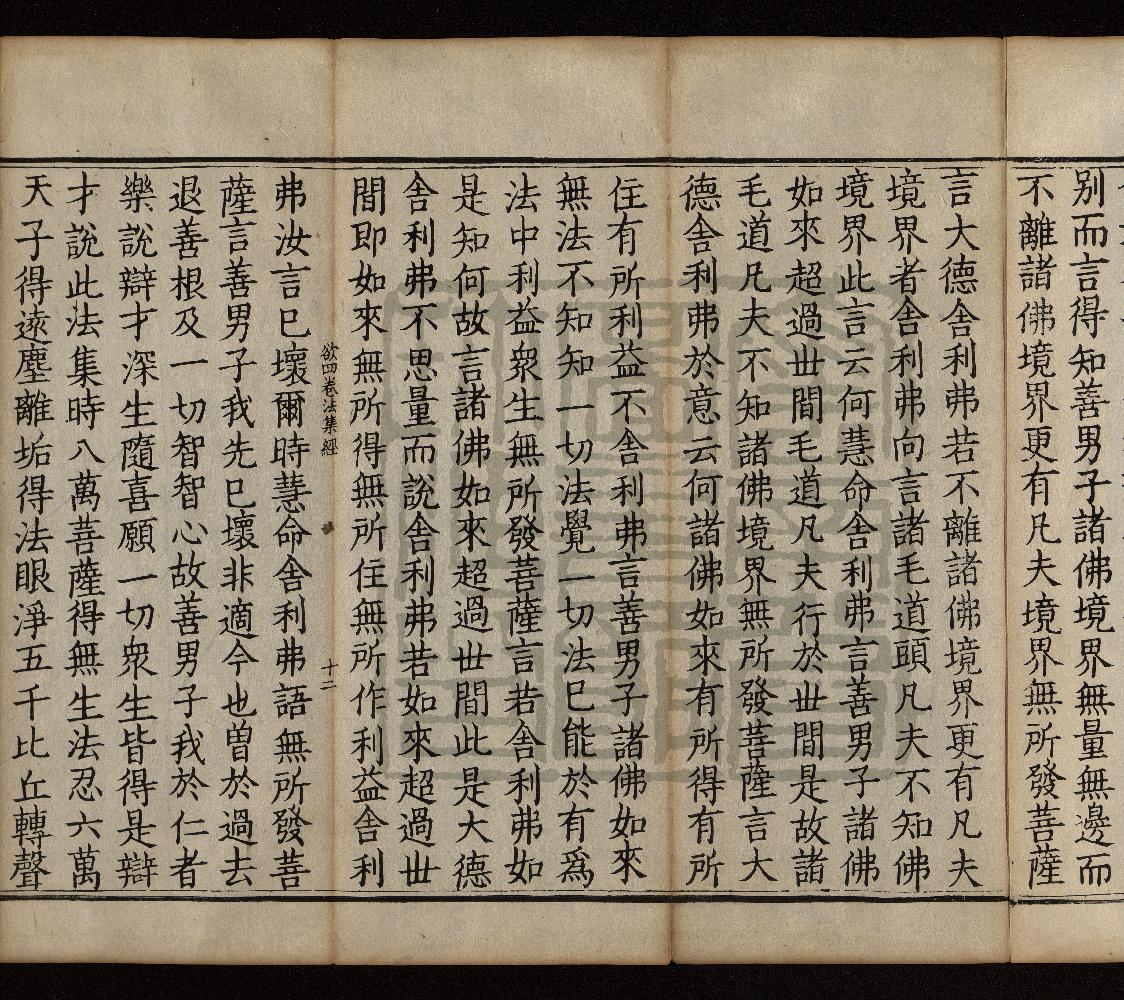 別而言得知善男子諸佛境界無量無邊而
不離諸佛境界更有凡夫境界無所發菩薩
言大德舍利弗若不離諸佛境界更有凡夫
境界者舍利弗向言諸毛道頭凡夫不知佛
境界此言云何慧命舍利弗言善男子諸佛
如來超過世間毛道凡夫行於世間是故諸
毛道凡夫不知諸佛境界無所發菩薩言大
德舍利弗於意云何諸佛如來有所得有所
住有所利益不舍利弗言善男子諸佛如來
無法不知知一切法覺一切法已能於有為
法中利益衆生無所發菩薩言若舍利弗如
是知何故言諸佛如來超過世間此是大德
舍利弗不思量而說舍利弗若如來超過世
間即如來無所得無所住無所作利益舍利
欲四卷法集經 十二
弗汝言已壞爾時慧命舍利弗語無所發菩
薩言善男子我先已壞非適今也曽於過去
退善根及一切智智心故善男子我於仁者
樂說辯才深生隨喜願一切衆生皆得是辯
才說此法集時八萬菩薩得無生法忍六萬
天子得遠塵離垢得法眼淨五千比丘轉聲